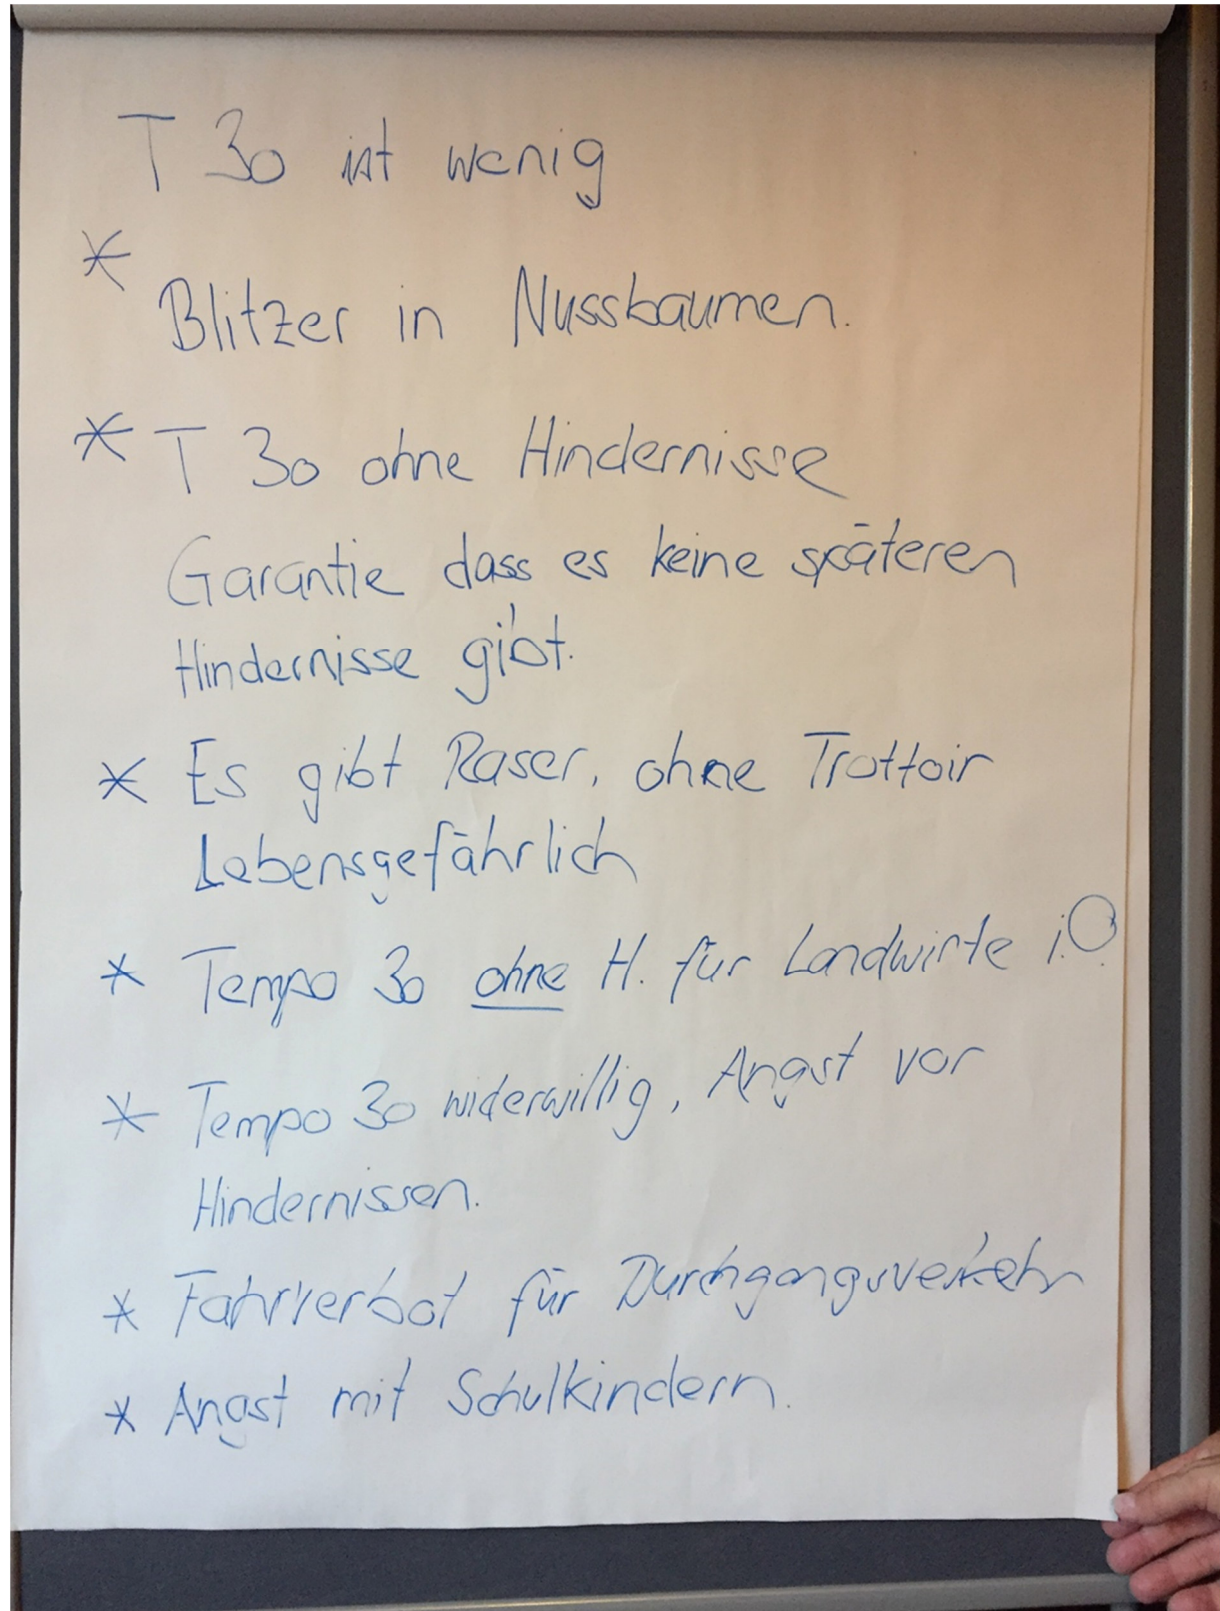 T 30 ist wenig
* Blitzer in Nussbaumen.
* T 30 ohne Hindernisse
Garantie dass es keine späteren
Hindernisse gibt.
* Es gibt Raser, ohne Trottoir
Lebensgefährlich
* Tempo 30 ohne H. für Landwirte i.O.
* Tempo 30 widerwillig, Angst vor
Hindernissen.
* Fahrverbot für Durchgangsverkehr
* Angst mit Schulkindern.